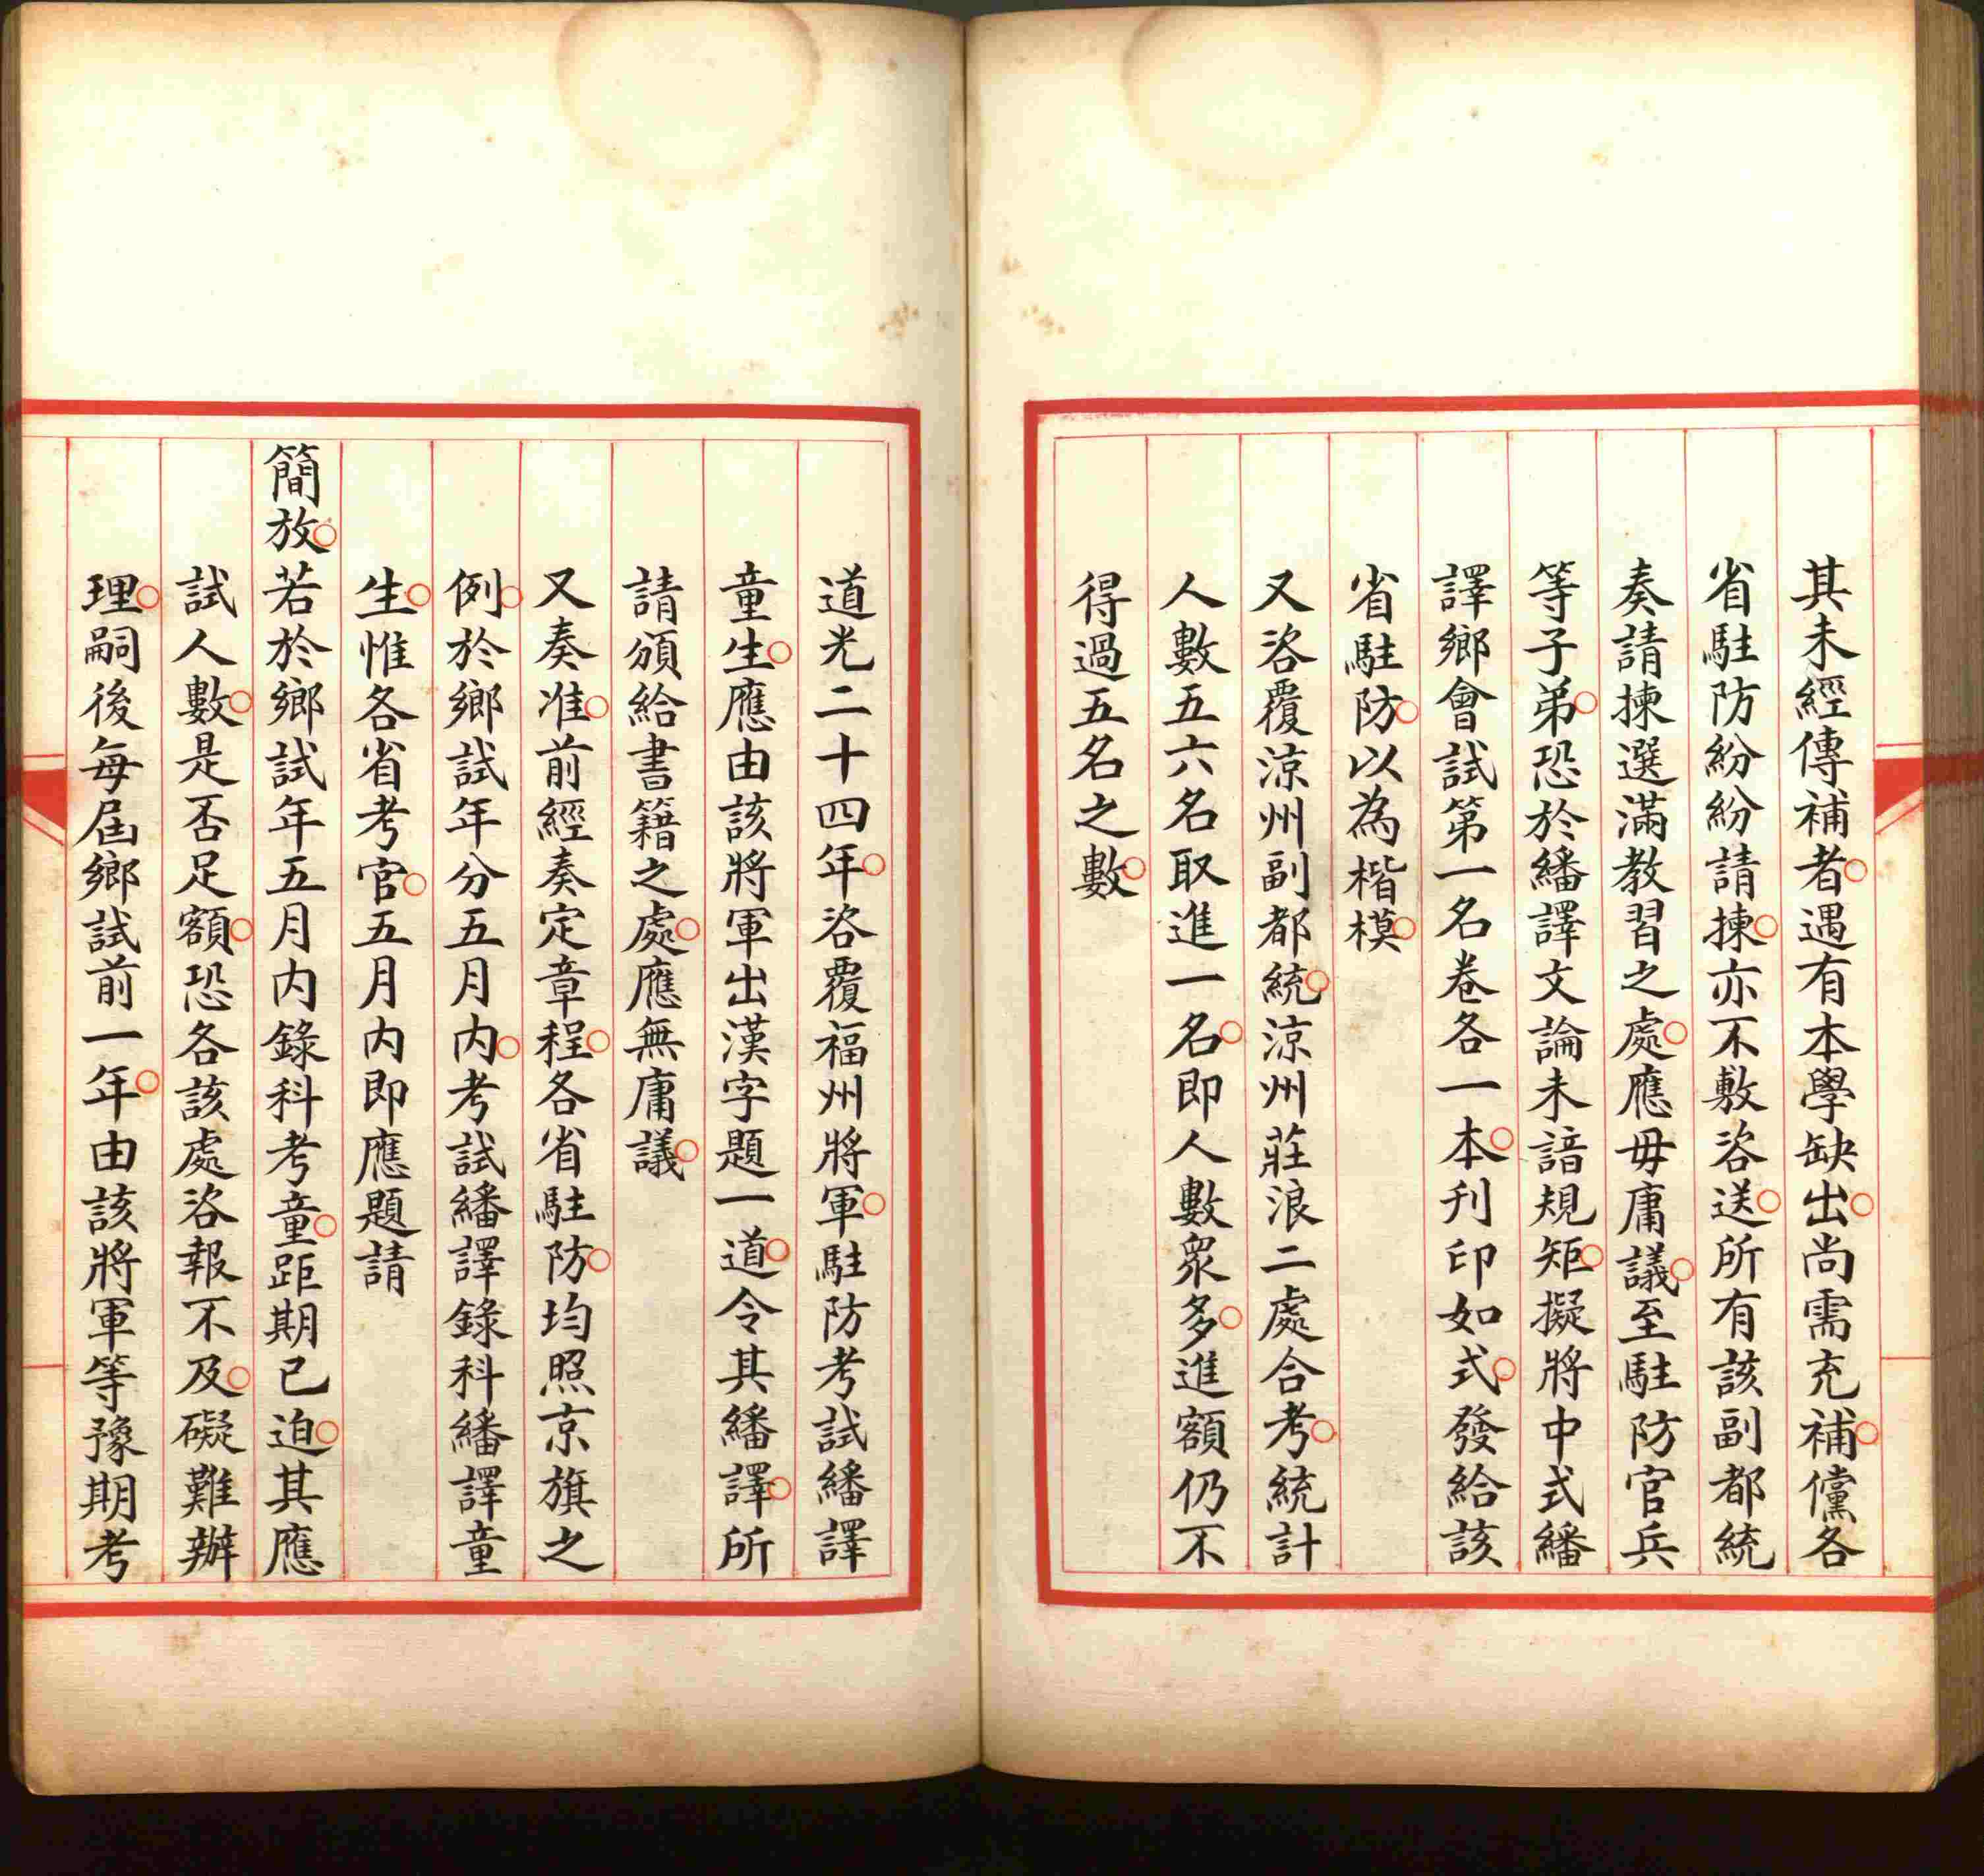 其未經傳補者○遇有本學缺出○尚需充補○儻各
省駐防紛紛請揀○亦不敷咨送○所有該副都統
奏請揀選滿教習之處○應毋庸議○至駐防官兵
等子弟○恐於繙譯文論未諳規矩○擬將中式繙
譯鄉會試第一名卷各一本○刊印如式○發給該
省駐防○以為楷模○
又咨覆涼州副都統○涼州莊浪二處合考○統計
人數五六名取進一名○即人數衆多○進額仍不
得過五名之數○
道光二十四年○咨覆福州將軍○駐防考試繙譯
童生○應由該將軍出漢字題一道○令其繙譯○所
請頒給書籍之處○應無庸議○
又奏准○前經奏定章程○各省駐防○均照京旗之
例○於鄉試年分五月內○考試繙譯錄科繙譯童
生○惟各省考官○五月內即應題請
簡放○若於鄉試年五月內錄科考童○距期已迫○其應
試人數○是否足額○恐各該處咨報不及○礙難辦
理○嗣後每屆鄉試前一年○由該將軍等豫期考